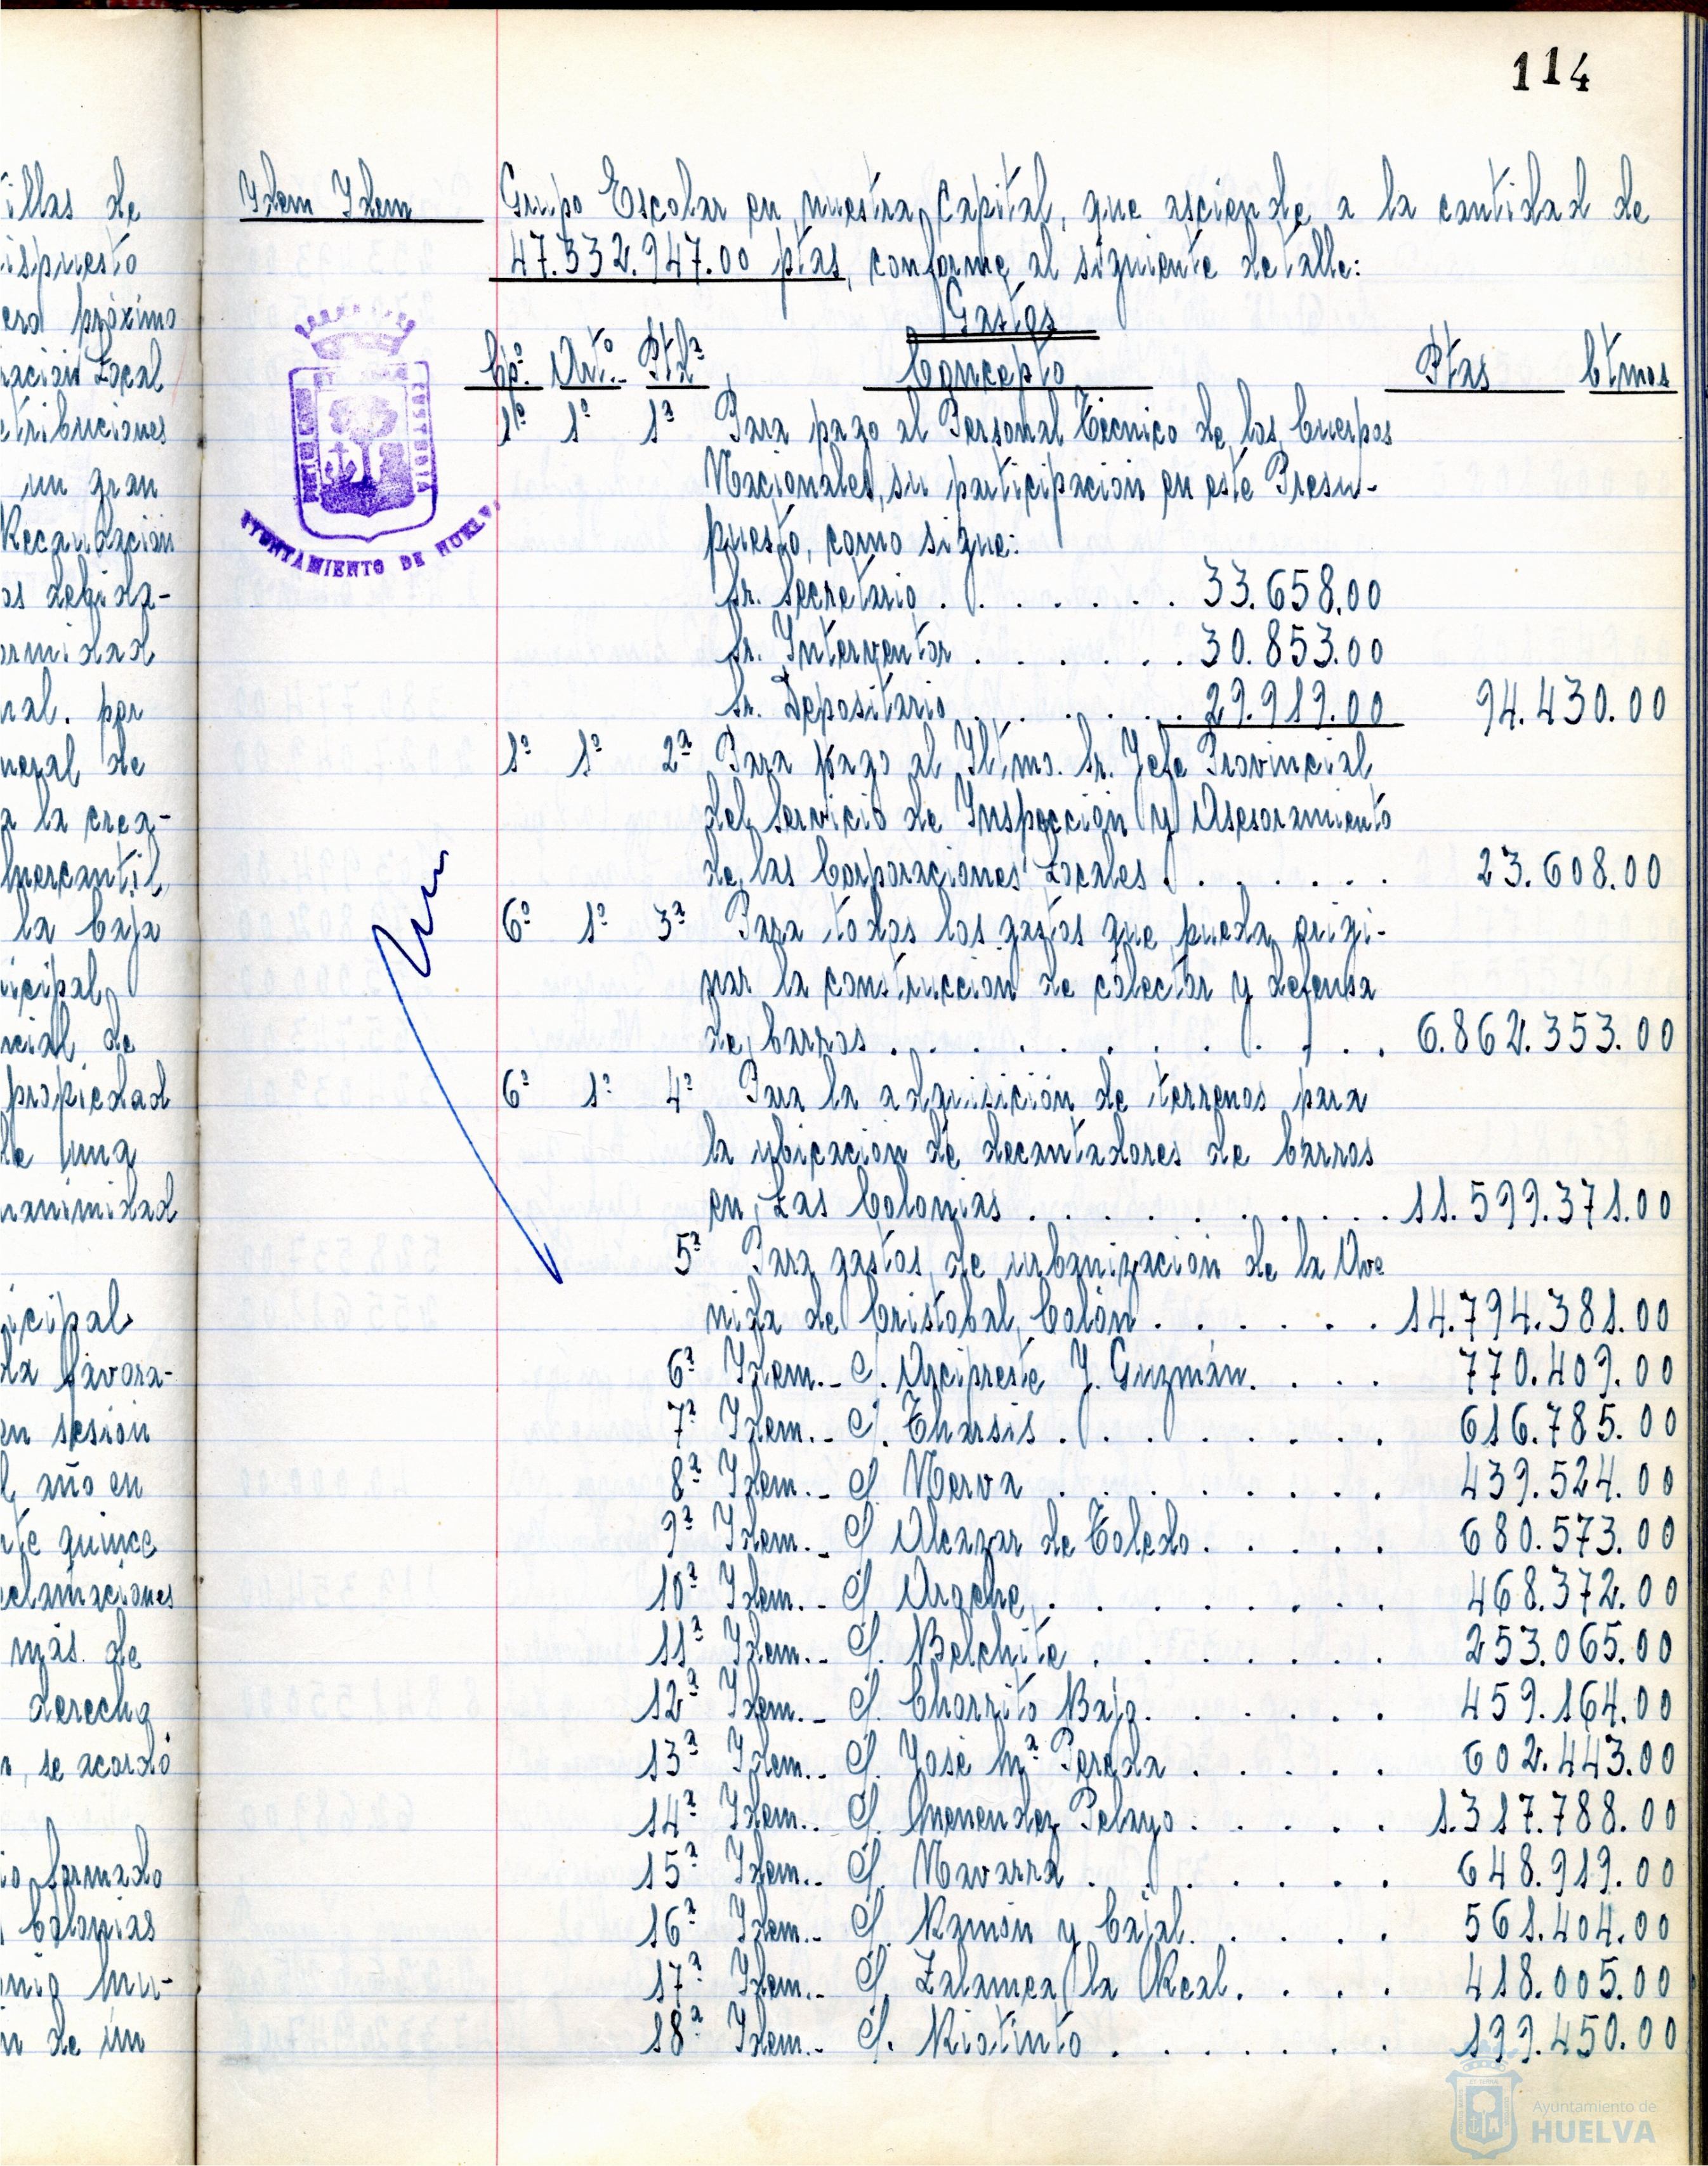 114
illas de
ispuesto
ero próximo
ración Local
etribuciones
un gran
Recaudación
os debida-
ormidad
ral. por
neral de
a la crea-
Mercantil
la baja
nicipal
ncial de
propiedad
de una
nanimidad
nicipal
da favora-
en sesión
l año en
nte quince
eclamaciones
más de
derecho
n, se acordó
io formado
Colonias
Mu-
n de un
Idem Idem
Grupo Escolar en nuestra Capital, que asciende a la cantidad de
47.332.947.00 ptas, conforme al siguiente detalle:
Gastos
Cpº. Artº.- Ptdª Concepto Ptas Ctmos
1º 1º 1ª Para pago al Personal Técnico de los Cuerpos
Nacionales, su participación en este Presu-
puesto, como sigue:
Sr. Secretario . . . . . . 33.658,00
Sr. Interventor . . . . . . 30.853.00
Sr. Depositario . . . . . . 29.919.00 94.430.00
1º 1º 2ª Para pago al Iltmo. Sr. Jefe Provincial
del Servicio de Inspección y Asesoramiento
de las Corporaciones Locales . . . . . . 23.608.00
6º 1º 3ª Para todos los gastos que pueda origi-
nar la construcción de colector y defensa
de barros . . . . . . . . . . 6.862.353.00
6º 1º 4ª Para la adquisición de terrenos para
la ubicación de decantadores de barros
en Las Colonias . . . . . . . . . 11.599.371.00
5ª Para gastos de urbanización de la Ave
nida de Cristobal Colón . . . . . . 14.794.381.00
6ª Idem.- C/. Arcipreste J. Guzmán. . . . 770.409.00
7ª Idem.- C/. Tharsis . . . . . . . . 616.785.00
8ª Idem.- C/ Nerva . . . . . . . . 439.524.00
9ª Idem.- C/ Alcazar de Toledo. . . . . 680.573.00
10ª Idem.- C/ Aroche . . . . . . . . 468.372.00
11ª Idem.- C/. Belchite . . . . . . . 253.065.00
12ª Idem.- C/. Chorrito Bajo. . . . . . 459.164.00
13ª Idem.- C/. José Mª Pereda . . . . . 602.443.00
14ª Idem.. C/. Menendez Pelayo . . . . . 1.317.788.00
15ª Idem.. C/. Navarra . . . . . . . 648.919.00
16ª Idem.- C/. Ramón y Cajal. . . . . 561.404.00
17ª Idem.- C/. Zalamea la Real. . . . 418.005.00
18ª Idem.- C/. Riotinto . . . . . . . 199.450.00
AYUNTAMIENTO DE HUELVA
Ayuntamiento de
HUELVA